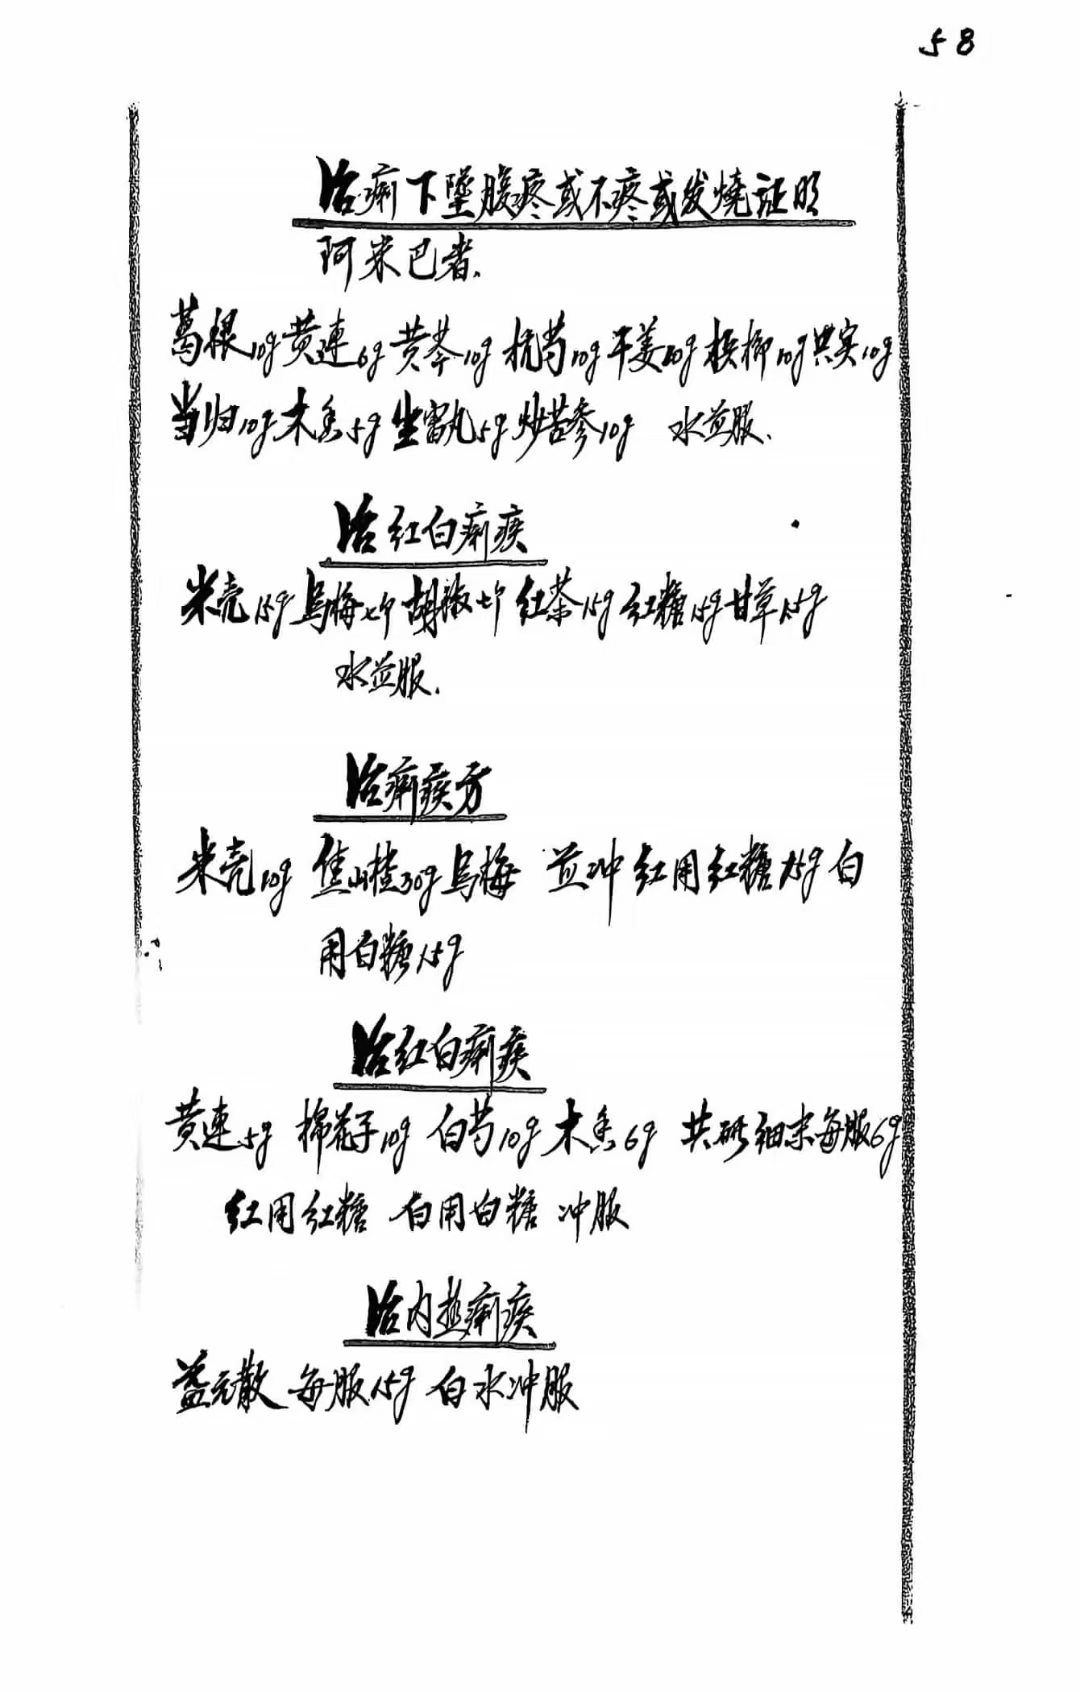 58
治痢下墜腹疼或不疼或发燒証明
阿米巴者.
葛根10g黄連6g黄芩10g杭芍10g干姜10g槟榔10g只实10g
当归10g木香5g生雷丸5g炒苦参10g 水煎服.
治红白痢疾
米壳15g乌梅七个胡椒七个红茶15g红糖15g甘草15g
水煎服.
治痢疾方
米壳10g 焦山楂30g乌梅 煎冲 红用红糖15g白
用白糖15g
治红白痢疾
黄連5g 棉花子10g 白芍10g 木香6g 共研细末每服6g
红用红糖 白用白糖 冲服
治内热痢疾
益元散 每服15g 白水冲服